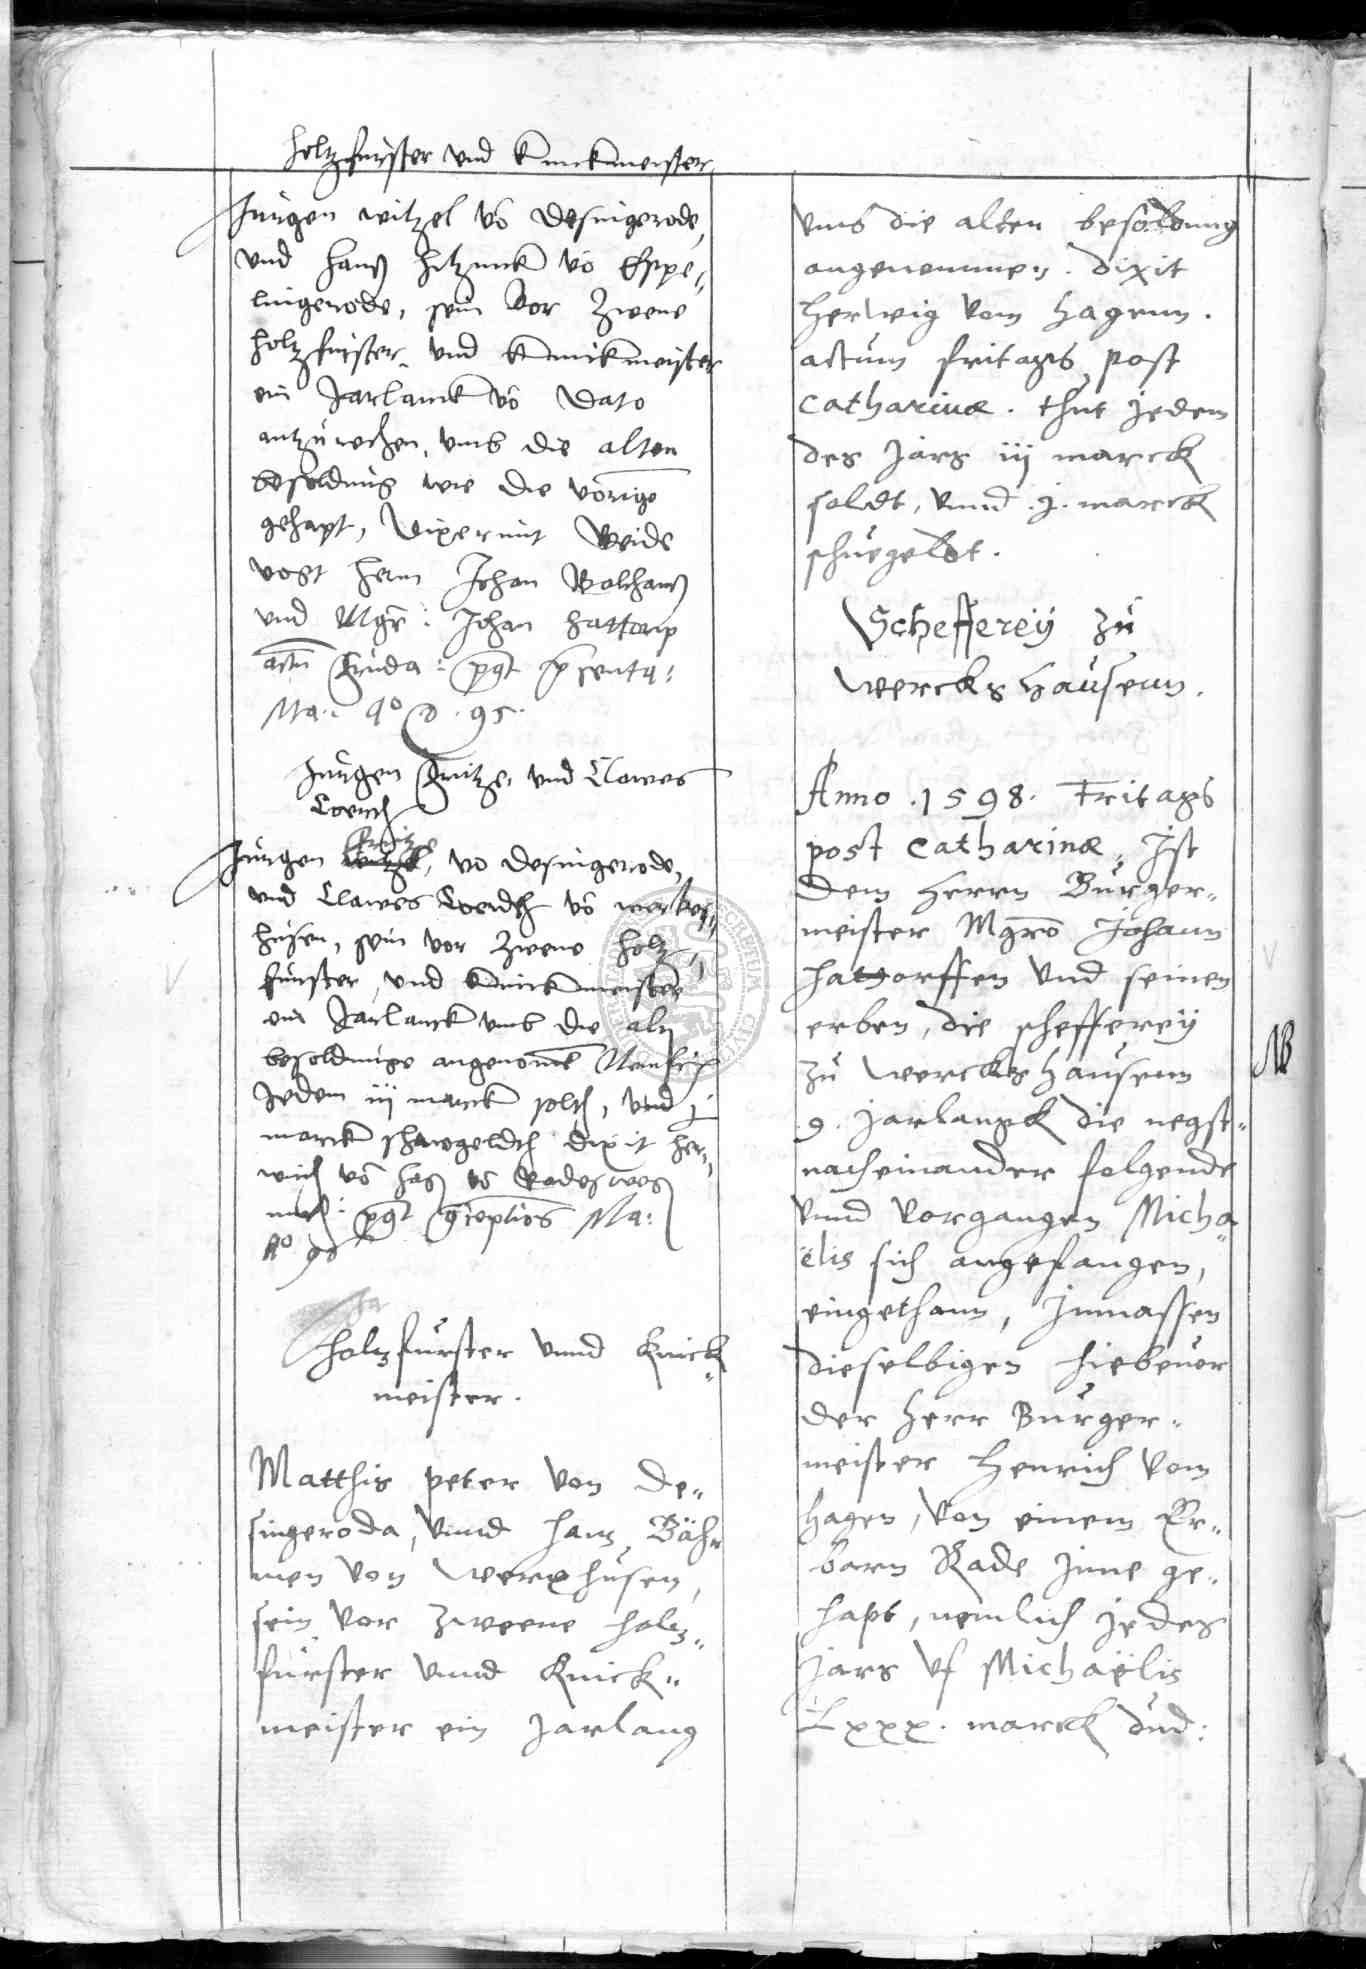 holtzfurster und knickmeister
Jurgen witzel vo Desingerode,
und Hanß vo Espe„
lingerode, sein vor zwene
holtzfurster und knickmeister
ein Jarlanck vo Dato
antzurechen, umb die alten
besoldung wie die vorige
gehapt, dixerunt Beide
vogt herrn Johan Bolthauß
und Mgr: Johan Hattorp
actu post presenta:
Ma: Ao d. 95.
Jurgen Fritze, und Clawes
Jurgen Fritze, vo Desingerode,
und Clawes vo werckes„
husen, sein vor zwene holtz„
furster, und knickmeister
ein Jarlanck umb die alte
besoldunge angenomē Nemlich
Jedem iij marck solth, und j
marck schowgeldth dixit Her„
wich vō Hag vō
post cōceptiōs Ma:
Ao
Holtzfurster unnd Knick„
meister.
Matthis peter von De„
singeroda, unnd Hans Bäh
men von Werxhusen,
sein vor zweene holtz„
furster unnd Knick„
meister ein Jarlang
umb die alten besoldung
angenommen. dixit
Herwig vom Hagenn.
actum fritags post
Catharinæ. thut jedem
des Jars iij marck
soldt, unnd .j. marck
schuegelt.
Schefferey zu
Werckshausenn.
Anno .1598. Fritags
post Catharinæ, Ist
dem Herrn Burger„
meister Mgro Johann
Hattorffen und seinen
erben, die schefferey
zu Werckshausenn
.9. jarlangk die negst„
nacheinander folgende
unnd vorgangen Micha„
ëlis sich angefangen,
eingethann, Inmassen
dieselbigen hiebevor
der Herr Burger„
meister Henrich vom
Hagen, von einem Er„
barn Rade Inne ge„
hapt, nemlich jedes
Jars uf Michaëlis
Lxxx. marck dud:
NB